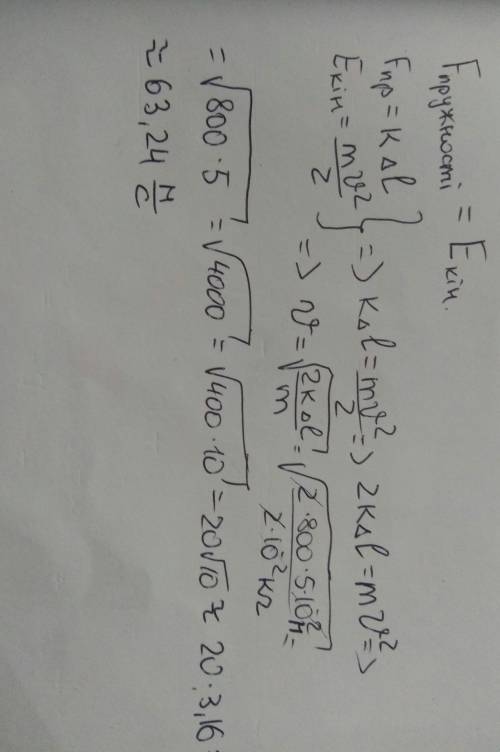 Fпружності = Eкін.
Fпр = kΔl
Eкін = mv²/2 } => kΔl = mv²/2 => 2kΔl = mv² =>
=> v = √(2kΔl/m) = √(2·800·5·10⁻² м/2·10⁻² кг) =
= √800·5 = √4000 = √400·10 = 20√10 ≈ 20·3,16 =
≈ 63,24 м/с